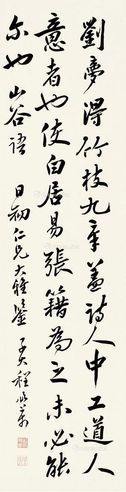 劉夢得竹枝九章蓋詩人中工道人
意者也使白居易張籍為之未必能
尔也山谷語 日初仁兄大雅鉴 子大程頌萬